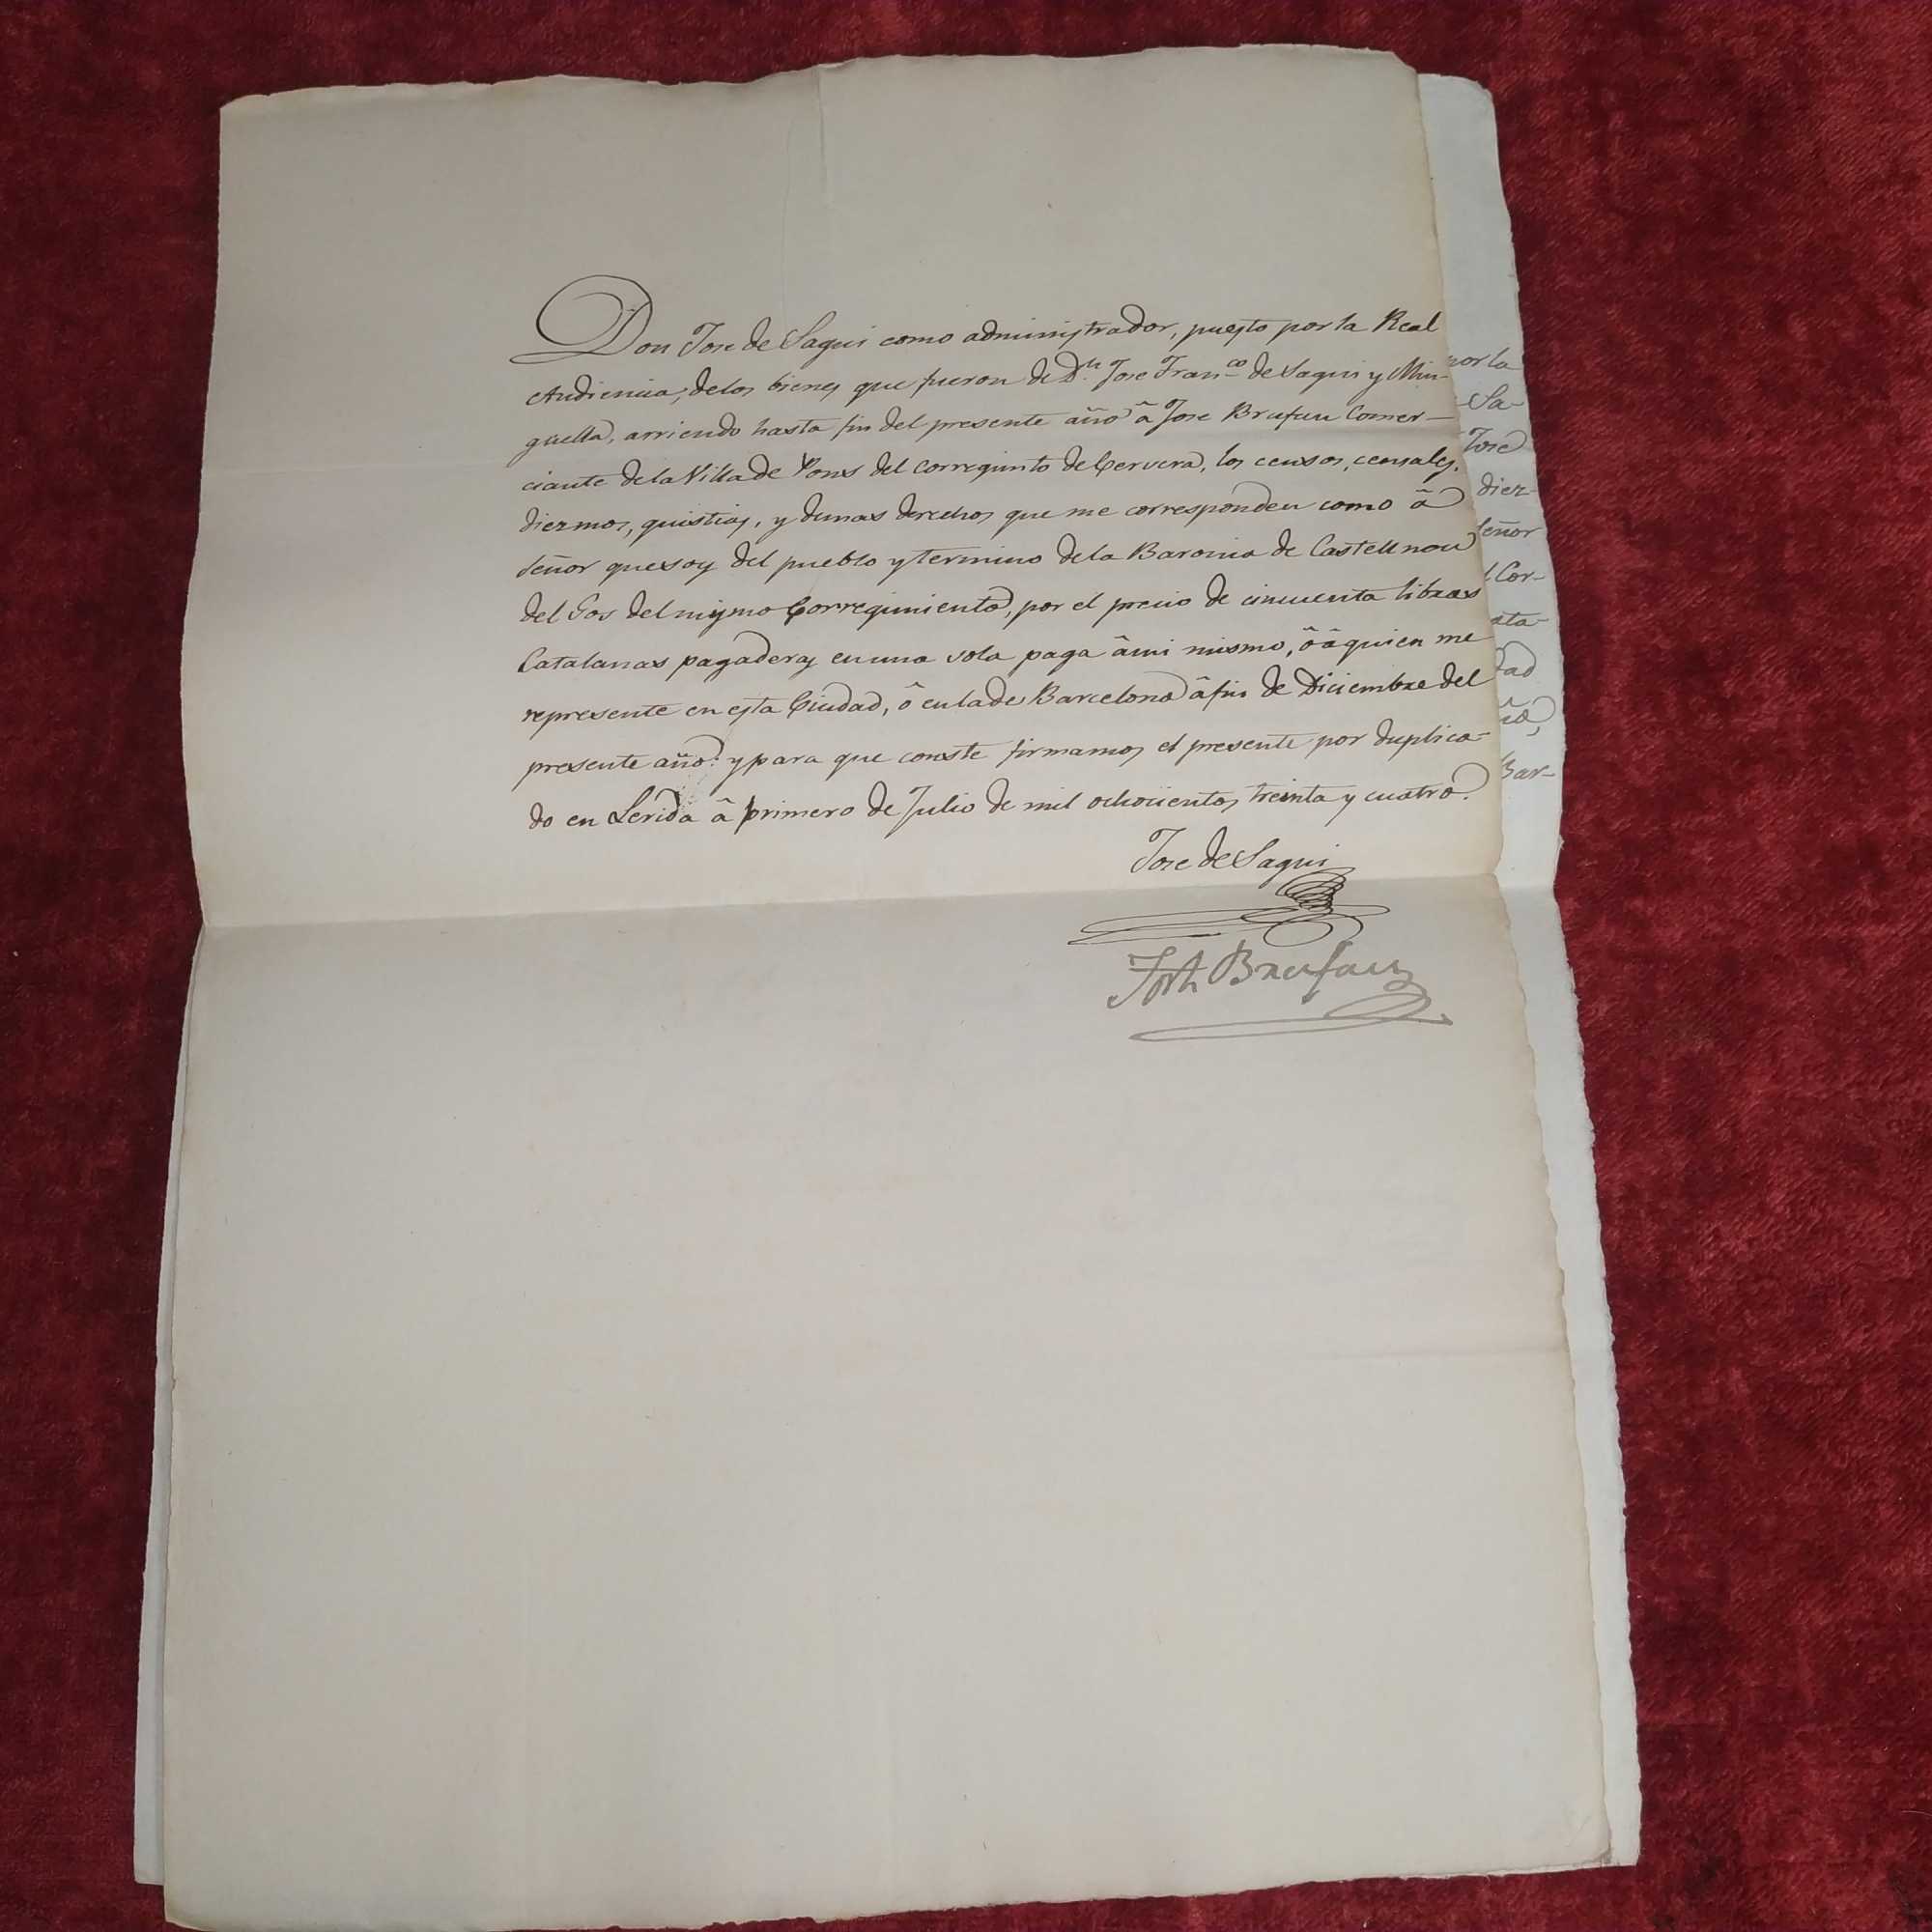 Don Jose de Sagui como administrador, puesto por la Real
Audiencia, delos bienes que fueron de Dn. Jose Franco. de Sagui y Min-
guella, arriendo hasta fin del presente año â Jose Brufau Comer-
ciante dela Villa de Pons del corregimto de Cervera, los censos, censales,
diezmos, quistias, y demas derechos que me corresponden como â
Señor que soy del pueblo y termino dela Baronia de Castellnou
del Gos del mismo Corregimiento, por el precio de cincuenta libras
Catalanas pagaderas en una sola paga âmi mismo, ô â quien me
represente en esta Ciudad, ô en la de Barcelona â fin de Diciembre del
presente año: y para que conste firmamos el presente por duplica-
do en Lerida â primero de Julio de mil ochocientos treinta y cuatro.
Jose de Sagui
Brufau
por la
Sa-
Jose
diez-
Señor
Cor-
ata-
dad
Bar-